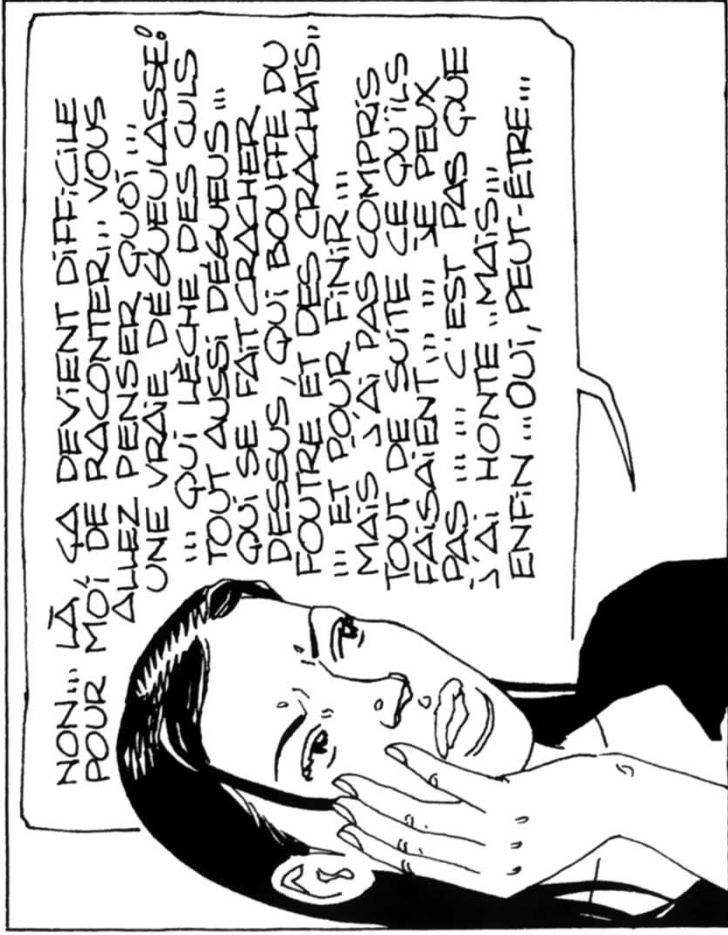 NON... LÀ, ÇA DEVIENT DIFFICILE
POUR MOI DE RACONTER... VOUS
ALLEZ PENSER QUOI...
UNE VRAIE DÉGUEULASSE!
... QUI LÈCHE DES CULS
TOUT AUSSI DÉGUEUS...
QUI SE FAIT CRACHER
DESSUS, QUI BOUFFE DU
FOUTRE ET DES CRACHATS..
... ET POUR FINIR...
MAIS J'AI PAS COMPRIS
TOUT DE SUITE CE QU'ILS
FAISAIENT... ... JE PEUX
PAS ... ... C'EST PAS QUE
J'AI HONTE ..MAIS...
ENFIN ...OUI, PEUT-ÊTRE...